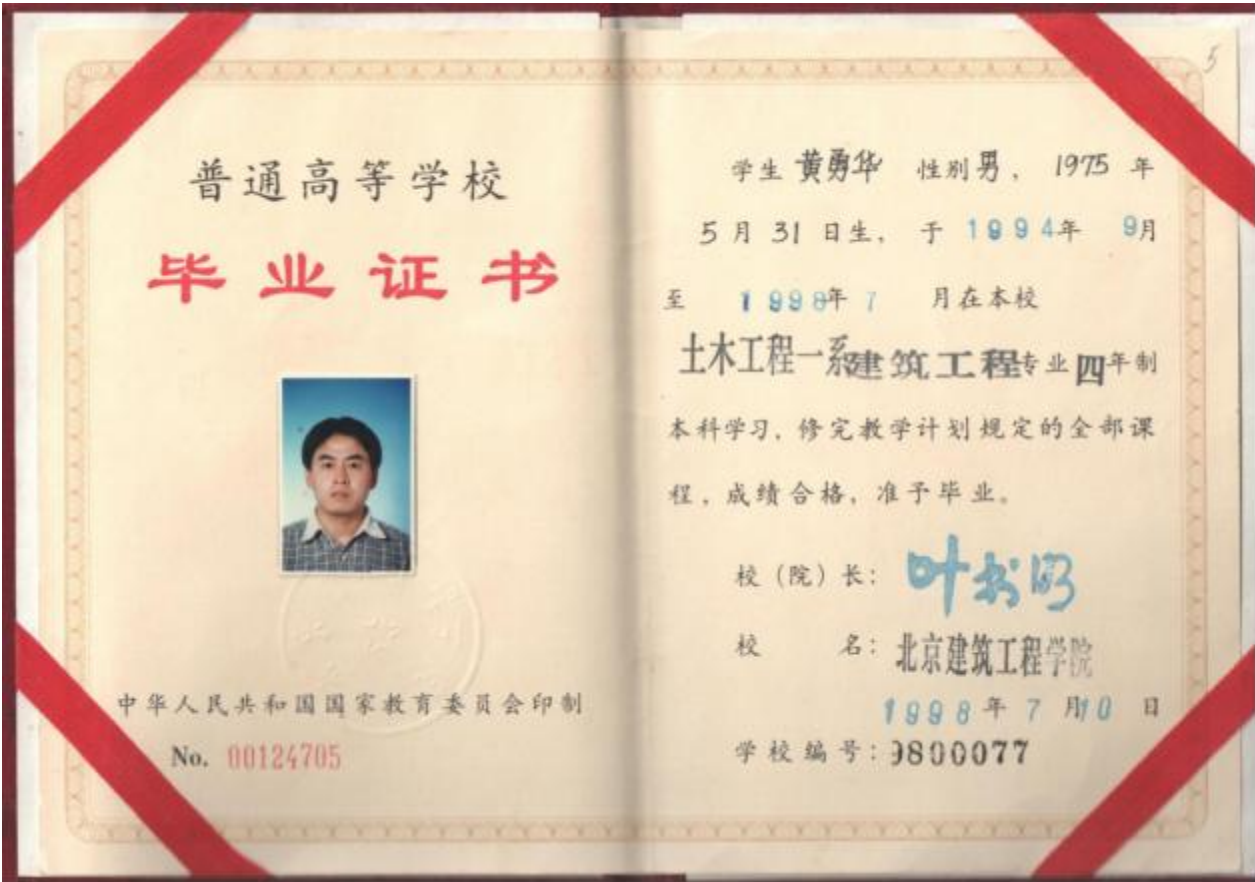 普通高等学校
毕业证书
中华人民共和国国家教育委员会印制
No. 00124705
5
学生 黄勇华 性别男, 1975 年
5 月 31 日生, 于 1994年 9月
至 1998年 7 月在本校
土木工程一系建筑工程专业四年制
本科学习, 修完教学计划规定的全部课
程, 成绩合格, 准予毕业。
校(院)长:
校 名: 北京建筑工程学院
1998 年 7 月10 日
学校编号: 9800077